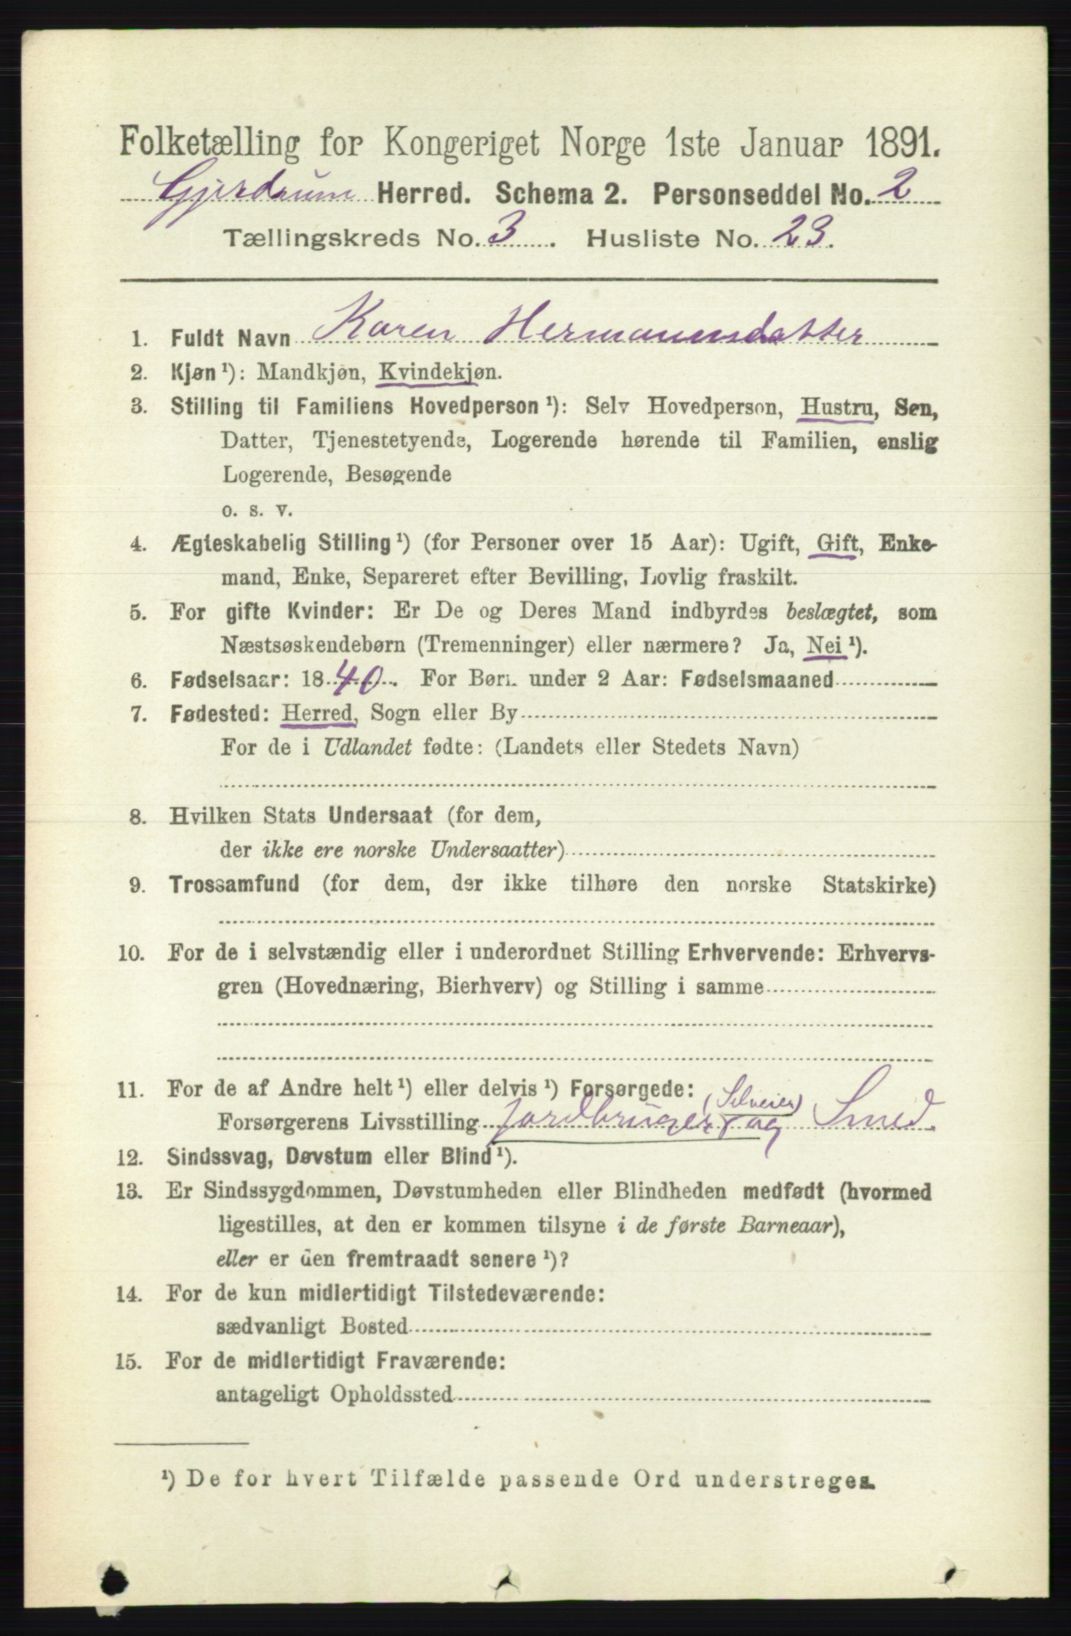 Folketælling for Kongeriget Norge 1ste Januar 1891.
Gjerdrum Herred. Schema 2. Personseddel No. 2
Tællingskreds No. 3. Husliste No. 23.
1. Fuldt Navn Karen Hermannsdatter
2. Kjøn¹): Mandkjøn, Kvindekjøn.
3. Stilling til Familiens Hovedperson¹): Selv Hovedperson, Hustru, Søn,
Datter, Tjenestetyende, Logerende hørende til Familien, enslig
Logerende, Besøgende
o. s. v.
4. Ægteskabelig Stilling¹) (for Personer over 15 Aar): Ugift, Gift, Enke-
mand, Enke, Separeret efter Bevilling, Lovlig fraskilt.
5. For gifte Kvinder: Er De og Deres Mand indbyrdes beslægtet, som
Næstsøskendebørn (Tremenninger) eller nærmere? Ja, Nei¹).
6. Fødselsaar: 1840. For Børn under 2 Aar: Fødselsmaaned
7. Fødested: Herred, Sogn eller By
For de i Udlandet fødte: (Landets eller Stedets Navn)
8. Hvilken Stats Undersaat (for dem,
der ikke ere norske Undersaatter)
9. Trossamfund (for dem, der ikke tilhøre den norske Statskirke)
10. For de i selvstændig eller i underordnet Stilling Erhvervende: Erhvervs-
gren (Hovednæring, Bierhverv) og Stilling i samme
11. For de af Andre helt¹) eller delvis¹) Forsørgede:
(Selveier)
Forsørgerens Livsstilling Jordbruger, og Smed.
12. Sindssvag, Døvstum eller Blind¹).
13. Er Sindssygdommen, Døvstumheden eller Blindheden medfødt (hvormed
ligestilles, at den er kommen tilsyne i de første Barneaar),
eller er den fremtraadt senere¹)?
14. For de kun midlertidigt Tilstedeværende:
sædvanligt Bosted
15. For de midlertidigt Fraværende:
antageligt Opholdssted
¹) De for hvert Tilfælde passende Ord understreges.